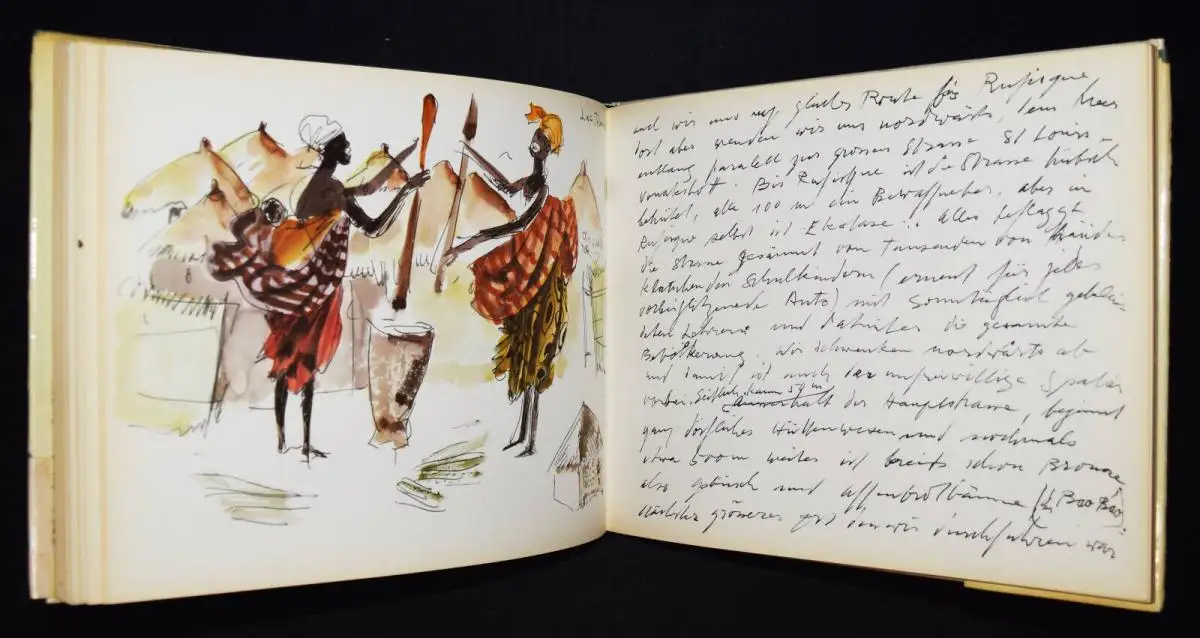 Lac
und wir sind auf, gleiches Route bis Rufisque,
dort aber wenden wir uns nordwärts, dem Meer
entlang paralell zur grossen Strasse St Louis –
. Bis Rufisque ist die Strasse
behütet, alle 100 m ein Bewaffneter, aber in
Rufisque selbst ist Ekstase!! Alles beflaggt
die Strasse gesäumt von Tanzenden von Hände
klatschenden Schulkindern (erneut für jedes
vorbeiflitzende Auto) mit sonntäglich geklei-
deten Lehrern und dahinter die gesamte
Bevölkerung. Wir schwenken nordwärts ab
und damit ist auch der unfreiwillige Spalier
vorbei. Seitlich, kaum 50 m
ausserhalb der Hauptstrasse, beginnt
ganz dörfliches Hüttenwesen und nochmals
etwa 500 m weiter ist bereits schon Brousse,
also gebüsch und affenbrotbäume (Bao Bao)
nächster grösserer Ort den wir durchfuhren war